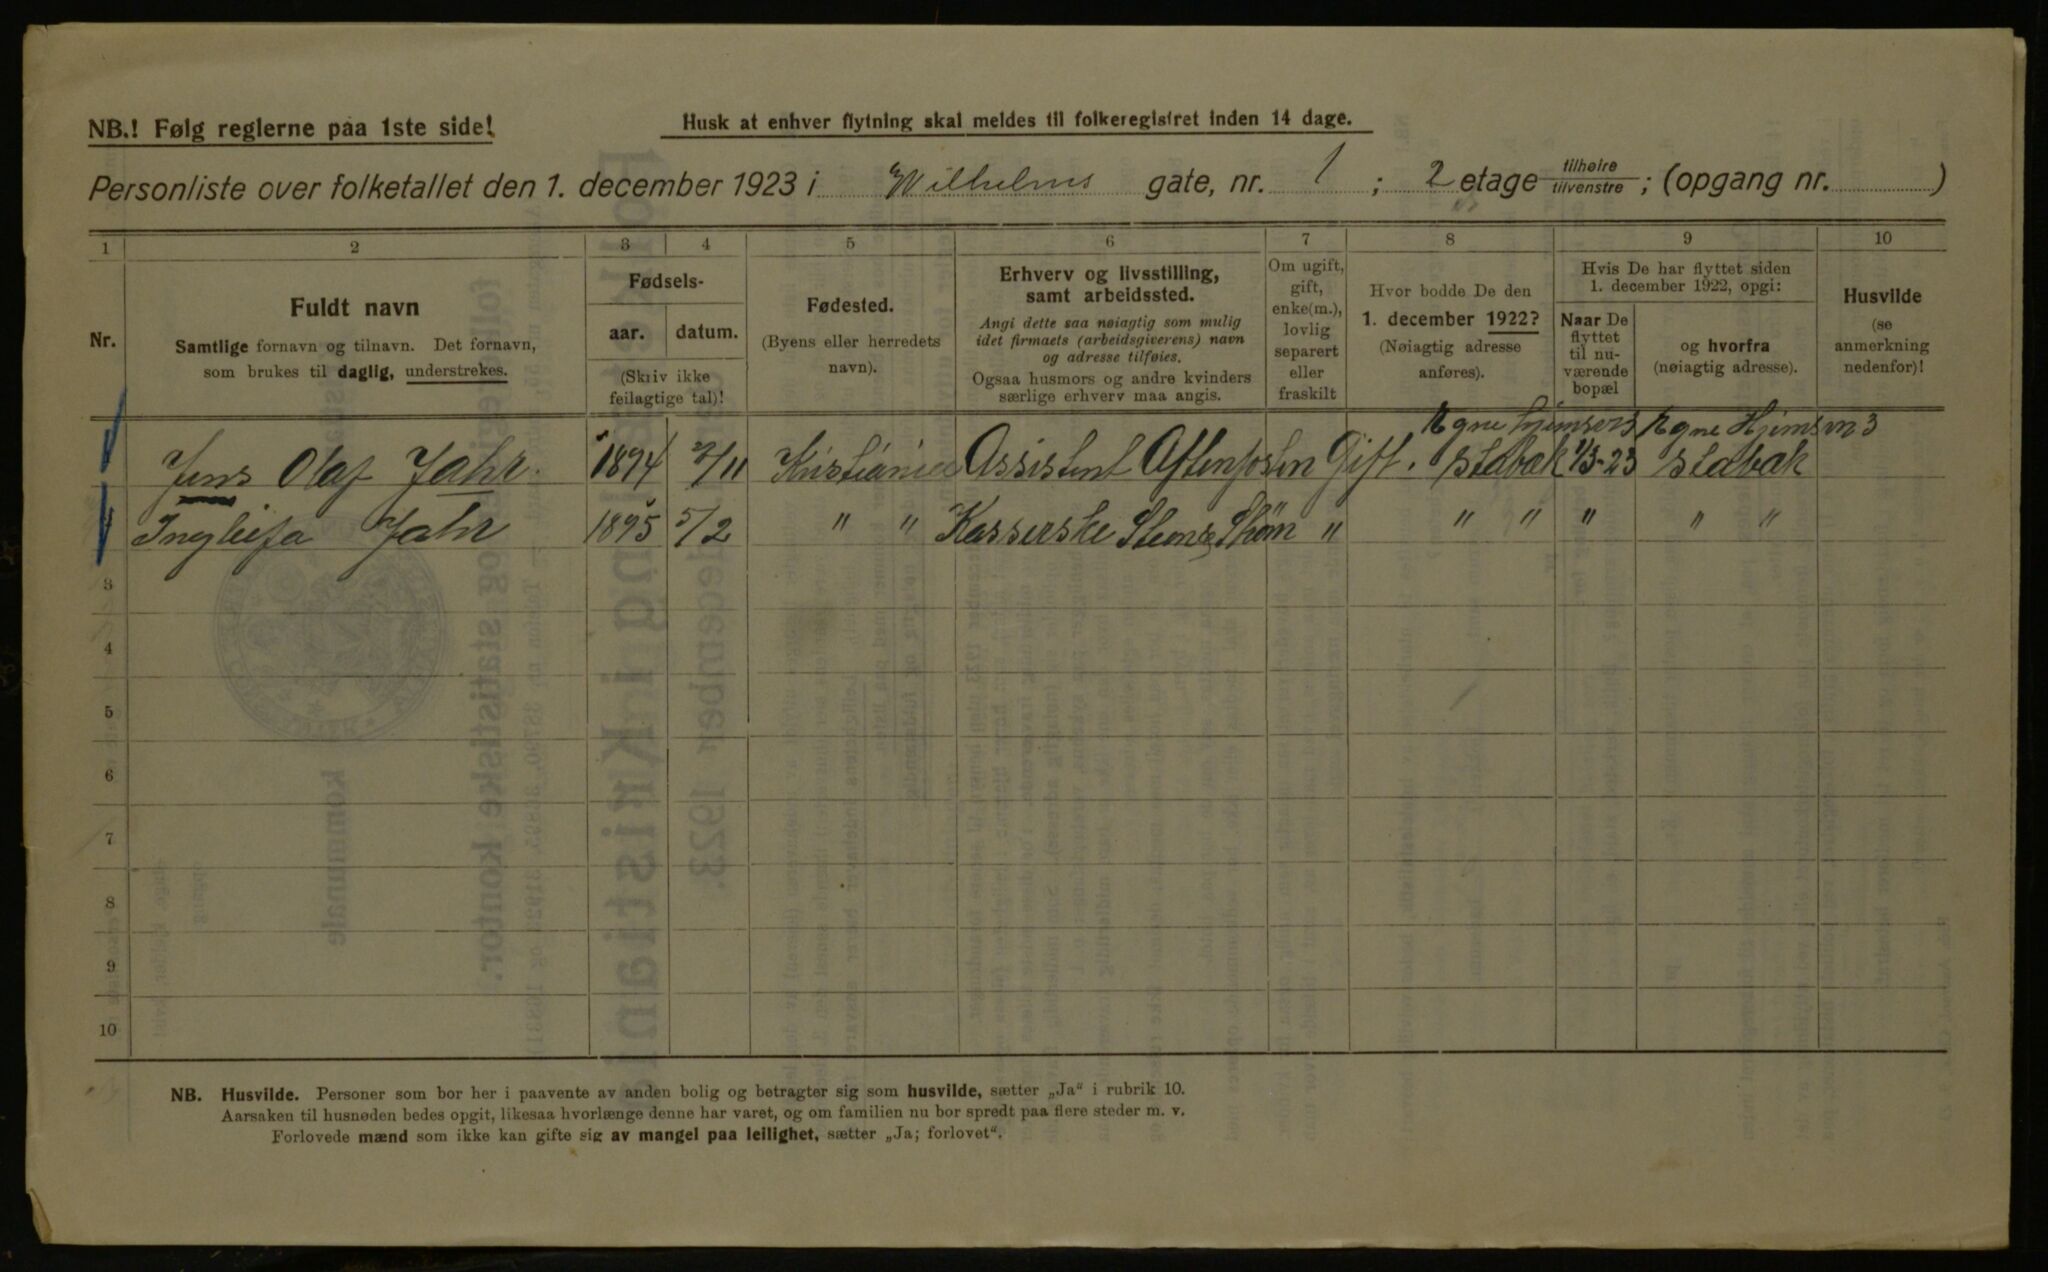 NB.! Følg reglerne paa 1ste side!
Husk at enhver flytning skal meldes til folkeregistret inden 14 dage.
Personliste over folketallet den 1. december 1923 i Wilhelms gate, nr. 1 ; 2 etage tilhøire tilvenstre ; (opgang nr. )
1 2 3 4 5 6 7 8 9 10
Nr.
Fuldt navn
Samtlige fornavn og tilnavn. Det fornavn,
som brukes til daglig, understrekes.
Fødsels-
aar. datum.
(Skriv ikke
feilagtige tal)!
Fødested.
(Byens eller herredets
navn).
Erhverv og livsstilling,
samt arbeidssted.
Angi dette saa nøiagtig som mulig
idet firmaets (arbeidsgiverens) navn
og adresse tilføies.
Ogsaa husmors og andre kvinders
særlige erhverv maa angis.
Om ugift,
gift,
enke(m.),
lovlig
separert
eller
fraskilt
Hvor bodde De den
1. december 1922?
(Nøiagtig adresse
anføres).
Hvis De har flyttet siden
1. december 1922, opgi:
Naar De
flyttet
til nu-
værende
bopæl
og hvorfra
(nøiagtig adresse).
Husvilde
(se
anmerkning
nedenfor)!
Egne Hjem 3
Jens Olaf Jahr. 1894 2/11 Kristiania Assistent Aftenposten Gift. Stabæk 1/3-23 Stabæk
Ingleifa Jahr 1895 5/2 " " Kasserske " " " " " "
3
4
5
6
7
8
9
10
NB. Husvilde. Personer som bor her i paavente av anden bolig og betragter sig som husvilde, sætter „Ja" i rubrik 10.
Aarsaken til husnøden bedes opgit, likesaa hvorlænge denne har varet, og om familien nu bor spredt paa flere steder m. v.
Forlovede mænd som ikke kan gifte sig av mangel paa leilighet, sætter „Ja; forlovet".